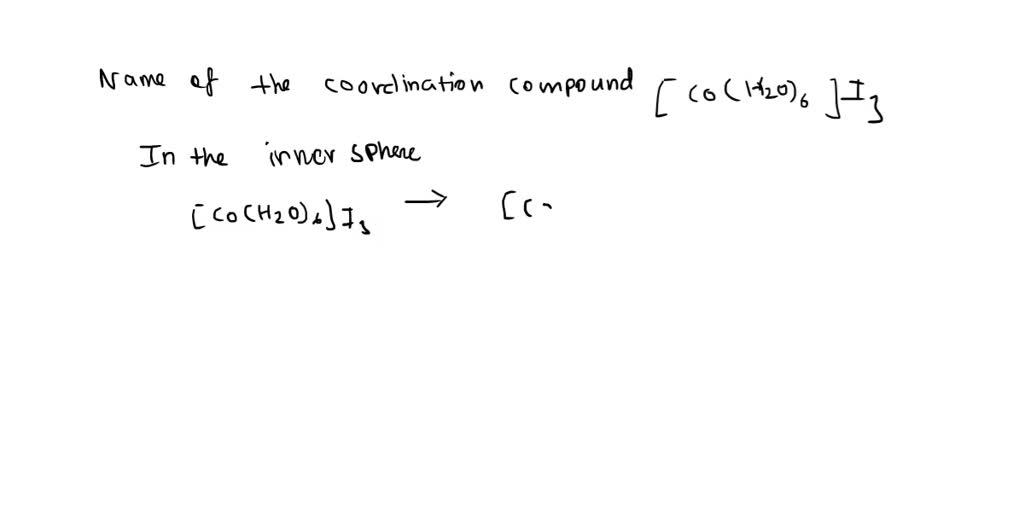 Name of the coordination compound [Co(H2O)6]I3
In the inner sphere
[Co(H2O)6]I3 → [C